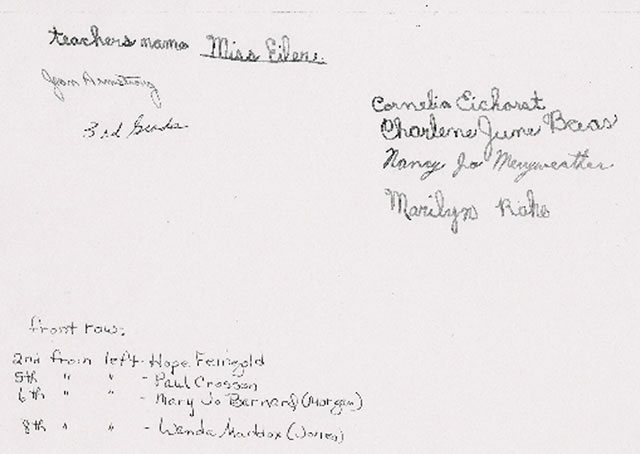 teachers name Miss Eilers.
Jean Armstrong
3rd Grade
Cornelia Eichorst
Charlene June Beeas
Nancy Jo Meryweather
Marilyn Rake
front row:
2nd from left - Hope Feingold
5th " " - Paul Crosson
6th " " - Mary Jo Bernard (Morgan)
8th " " - Wenda Maddox (Jones)